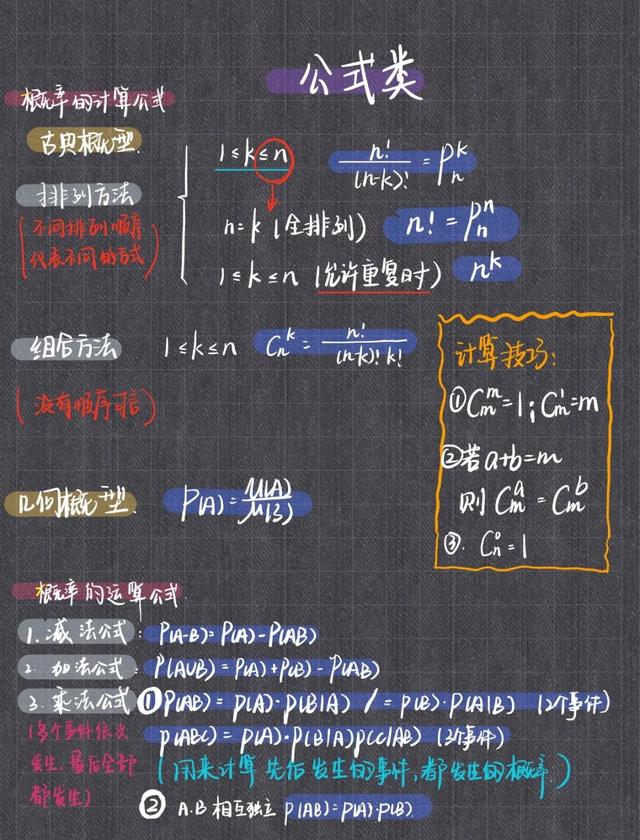 公式类
概率的计算公式
古典概型
排列方法
(不同排列顺序
代表不同的方式)
1≤k≤n  n!/(n-k)! = P_n^k
n=k (全排列)  n! = P_n^n
1≤k≤n (允许重复时)  n^k
组合方法  1≤k≤n  C_n^k = n!/(n-k)!k!
(没有顺序可言)
计算技巧:
①C_m^m=1; C_m^1=m
②若a+b=m
则 C_m^a = C_m^b
③. C_n^0=1
几何概型.  P(A)=μ(A)/μ(S)
概率的运算公式.
1.减法公式: P(A-B)=P(A)-P(AB)
2. 加法公式: P(A∪B)=P(A)+P(B)-P(AB)
3.乘法公式 ①P(AB)=P(A)·P(B|A) / =P(B)·P(A|B) (2个事件)
P(ABC)=P(A)·P(B|A)P(C|AB) (3个事件)
(多个事件依次
发生,最后全部
都发生)
(用来计算先后发生的事件,都发生的概率.)
② A.B 相互独立 P(AB)=P(A)·P(B)